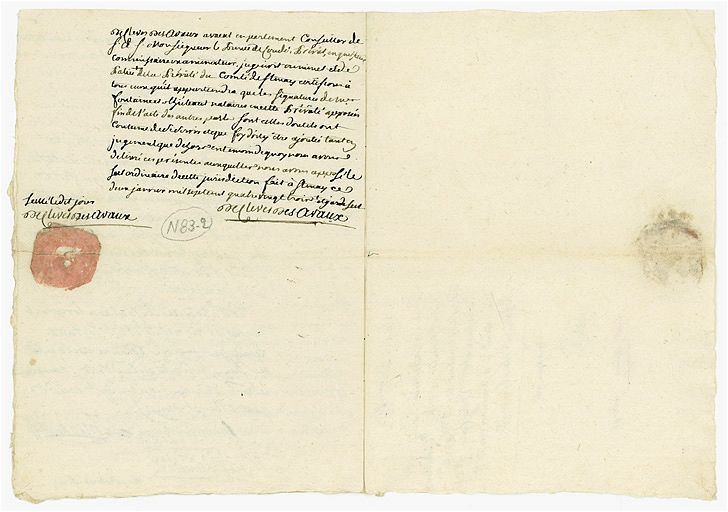 avocat en parlement Conseiller de
S. A. S. Monseigneur le Prince de Condé, Prévôt, enquesteur
Commissaire examinateur, juge civil criminel et de
Police de la Prévôté du Comté de Stenay certifions à
tous ceux qu'il appartiendra que les signatures de
Fontaines et notaires en cette Prévôté apposées
fin de l'acte des autres parts sont celles dont ils ont
Coutume de se servir et que foy doit y être ajoutée tant en
jugement que dehors en temoin de quoy nous avons
délivré ces présentes auxquelles nous avons apposé le
scel ordinaire de cette jurisdiction fait à Stenay ce
janvier mil sept cent quatre vingt trois
Scellé ledit jour
des avaux
des avaux
N83-2